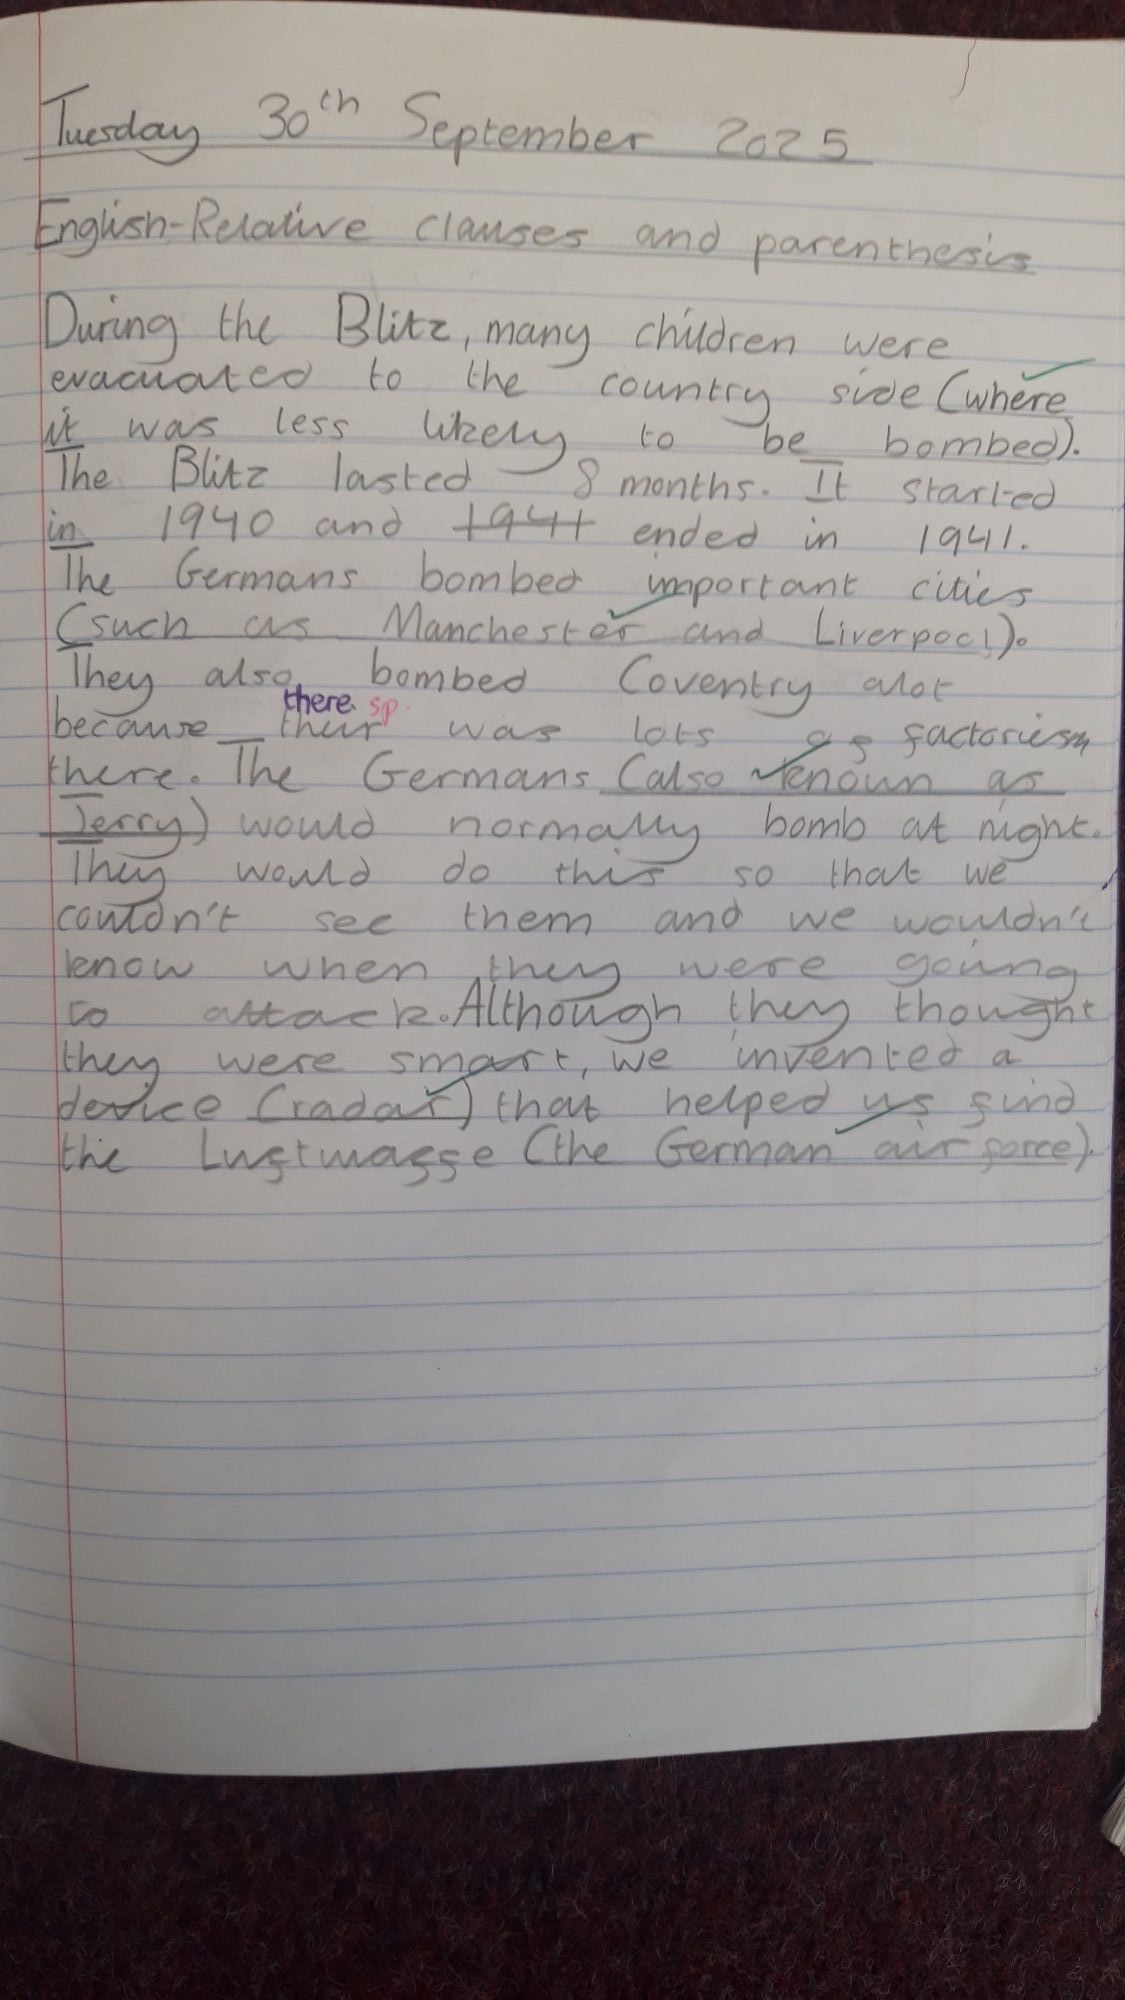 Tuesday 30th September 2025
English-Relative clauses and parenthesis
During the Blitz, many children were
evacuated to the country side (where
it was less likely to be bombed).
The Blitz lasted 8 months. It started
in 1940 and 1941 ended in 1941.
The Germans bombed important cities
(such as Manchester and Liverpool).
They also bombed Coventry alot
there sp.
because their was lots of factories
there. The Germans (also known as
Jerry) would normally bomb at night.
They would do this so that we
couldn't see them and we wouldn't
know when they were going
to attack. Although they thought
they were smart, we invented a
device (radar) that helped us find
the Luftwaffe (the German air force).